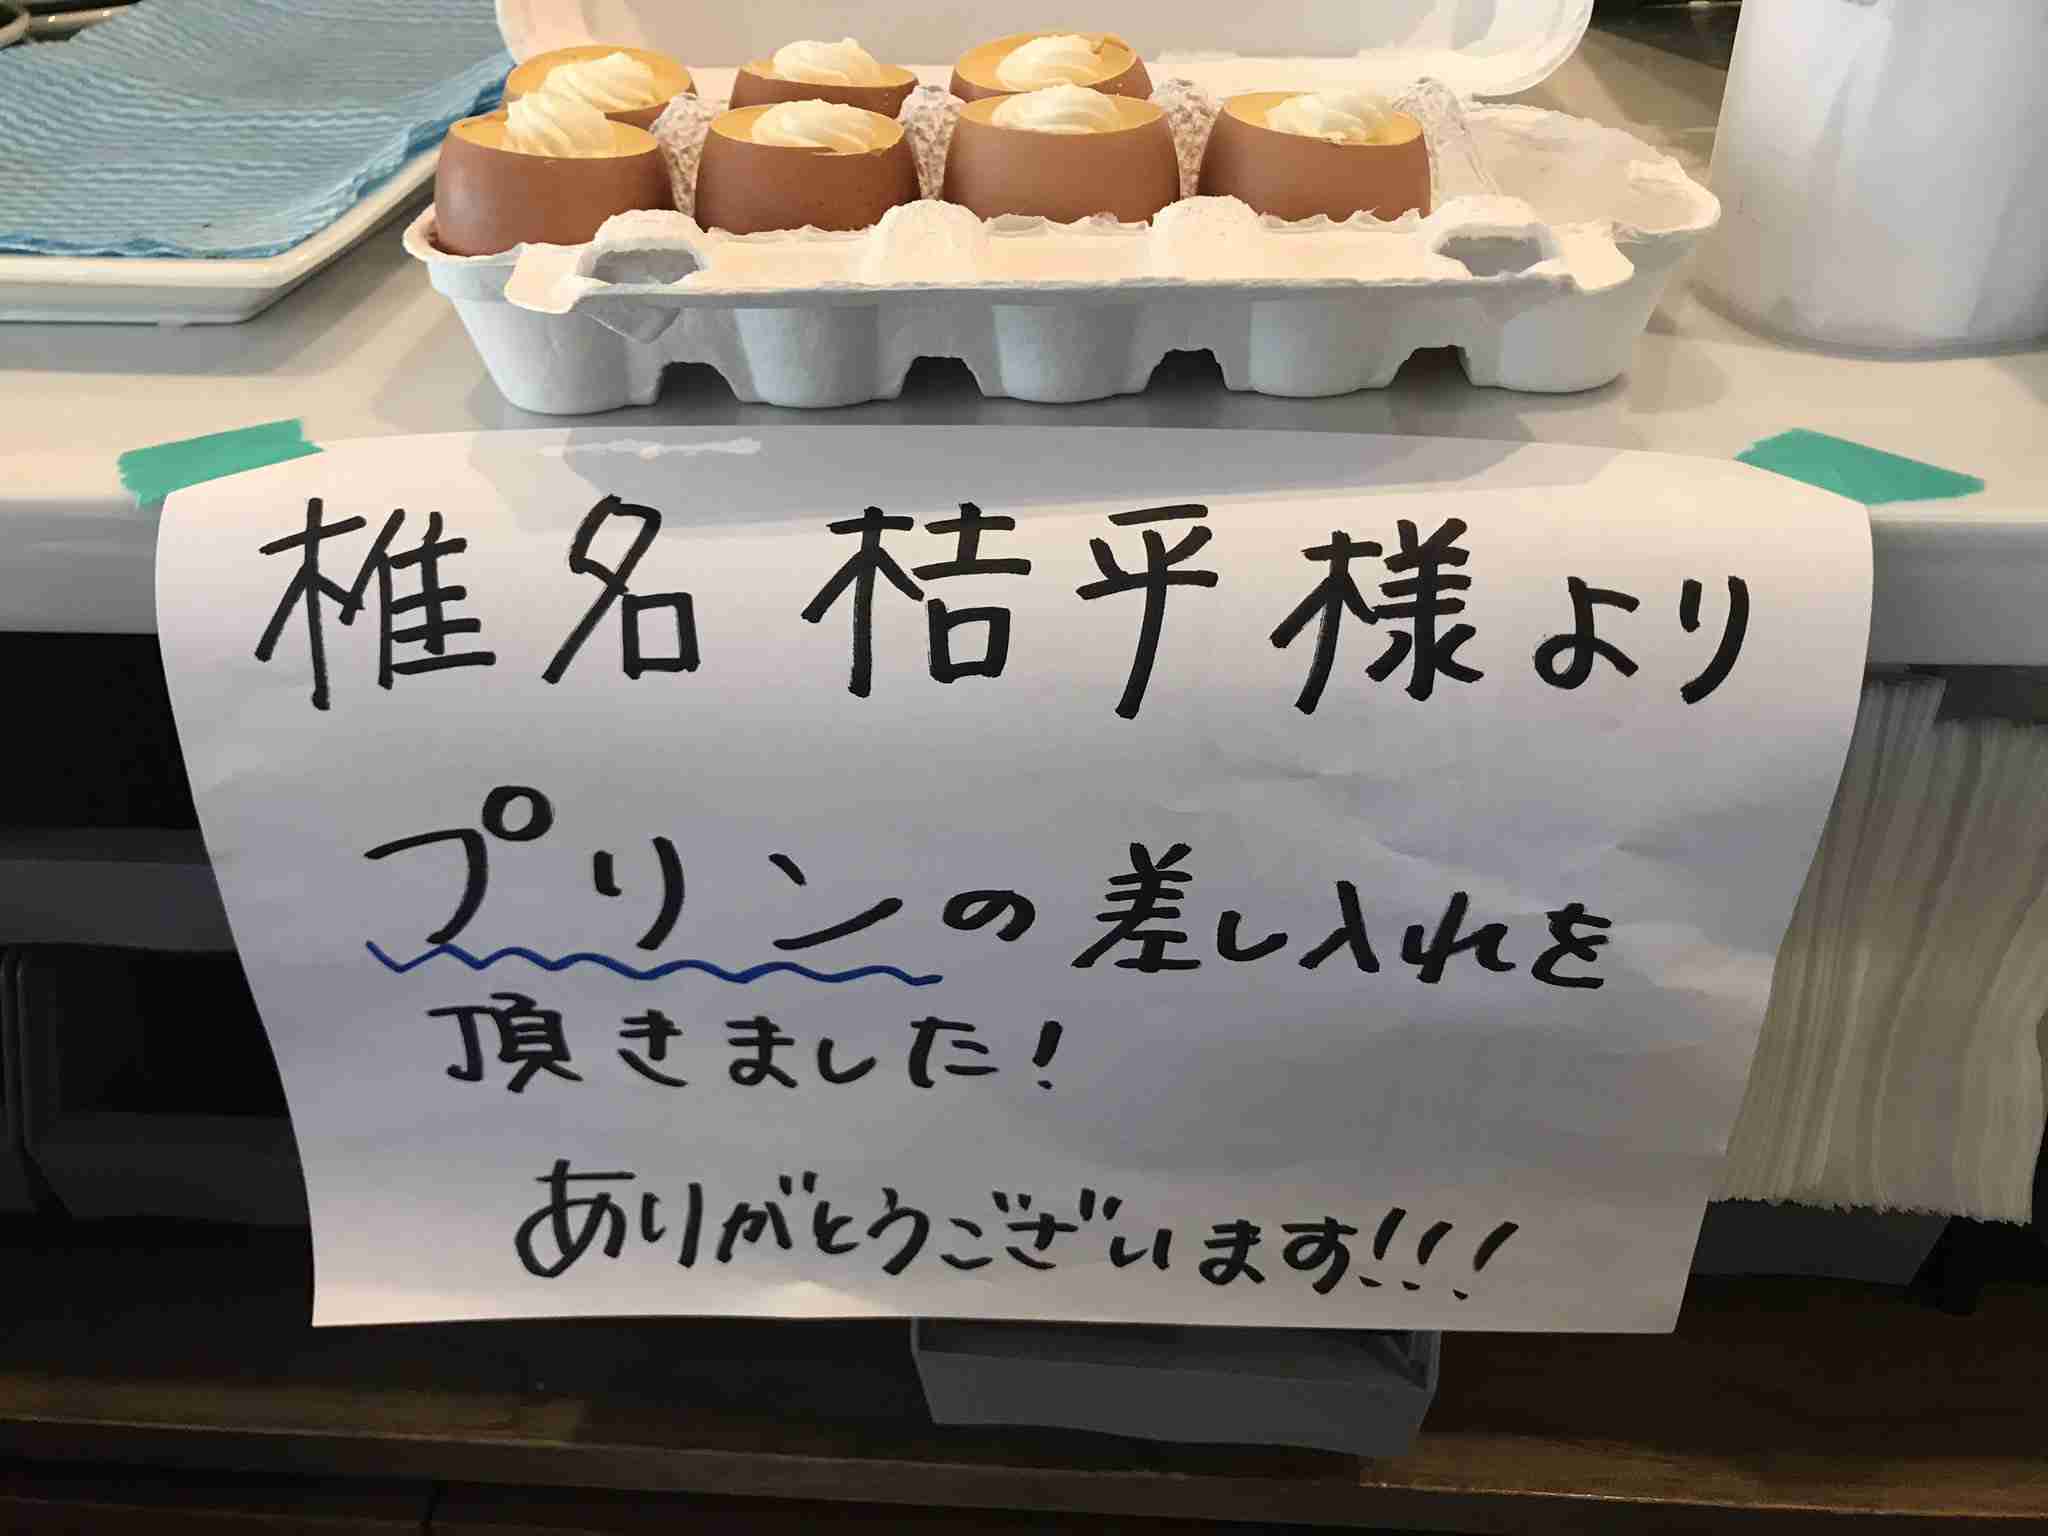 椎名 桔平様より
プリンの差し入れを
頂きました!
ありがとうございます!!!